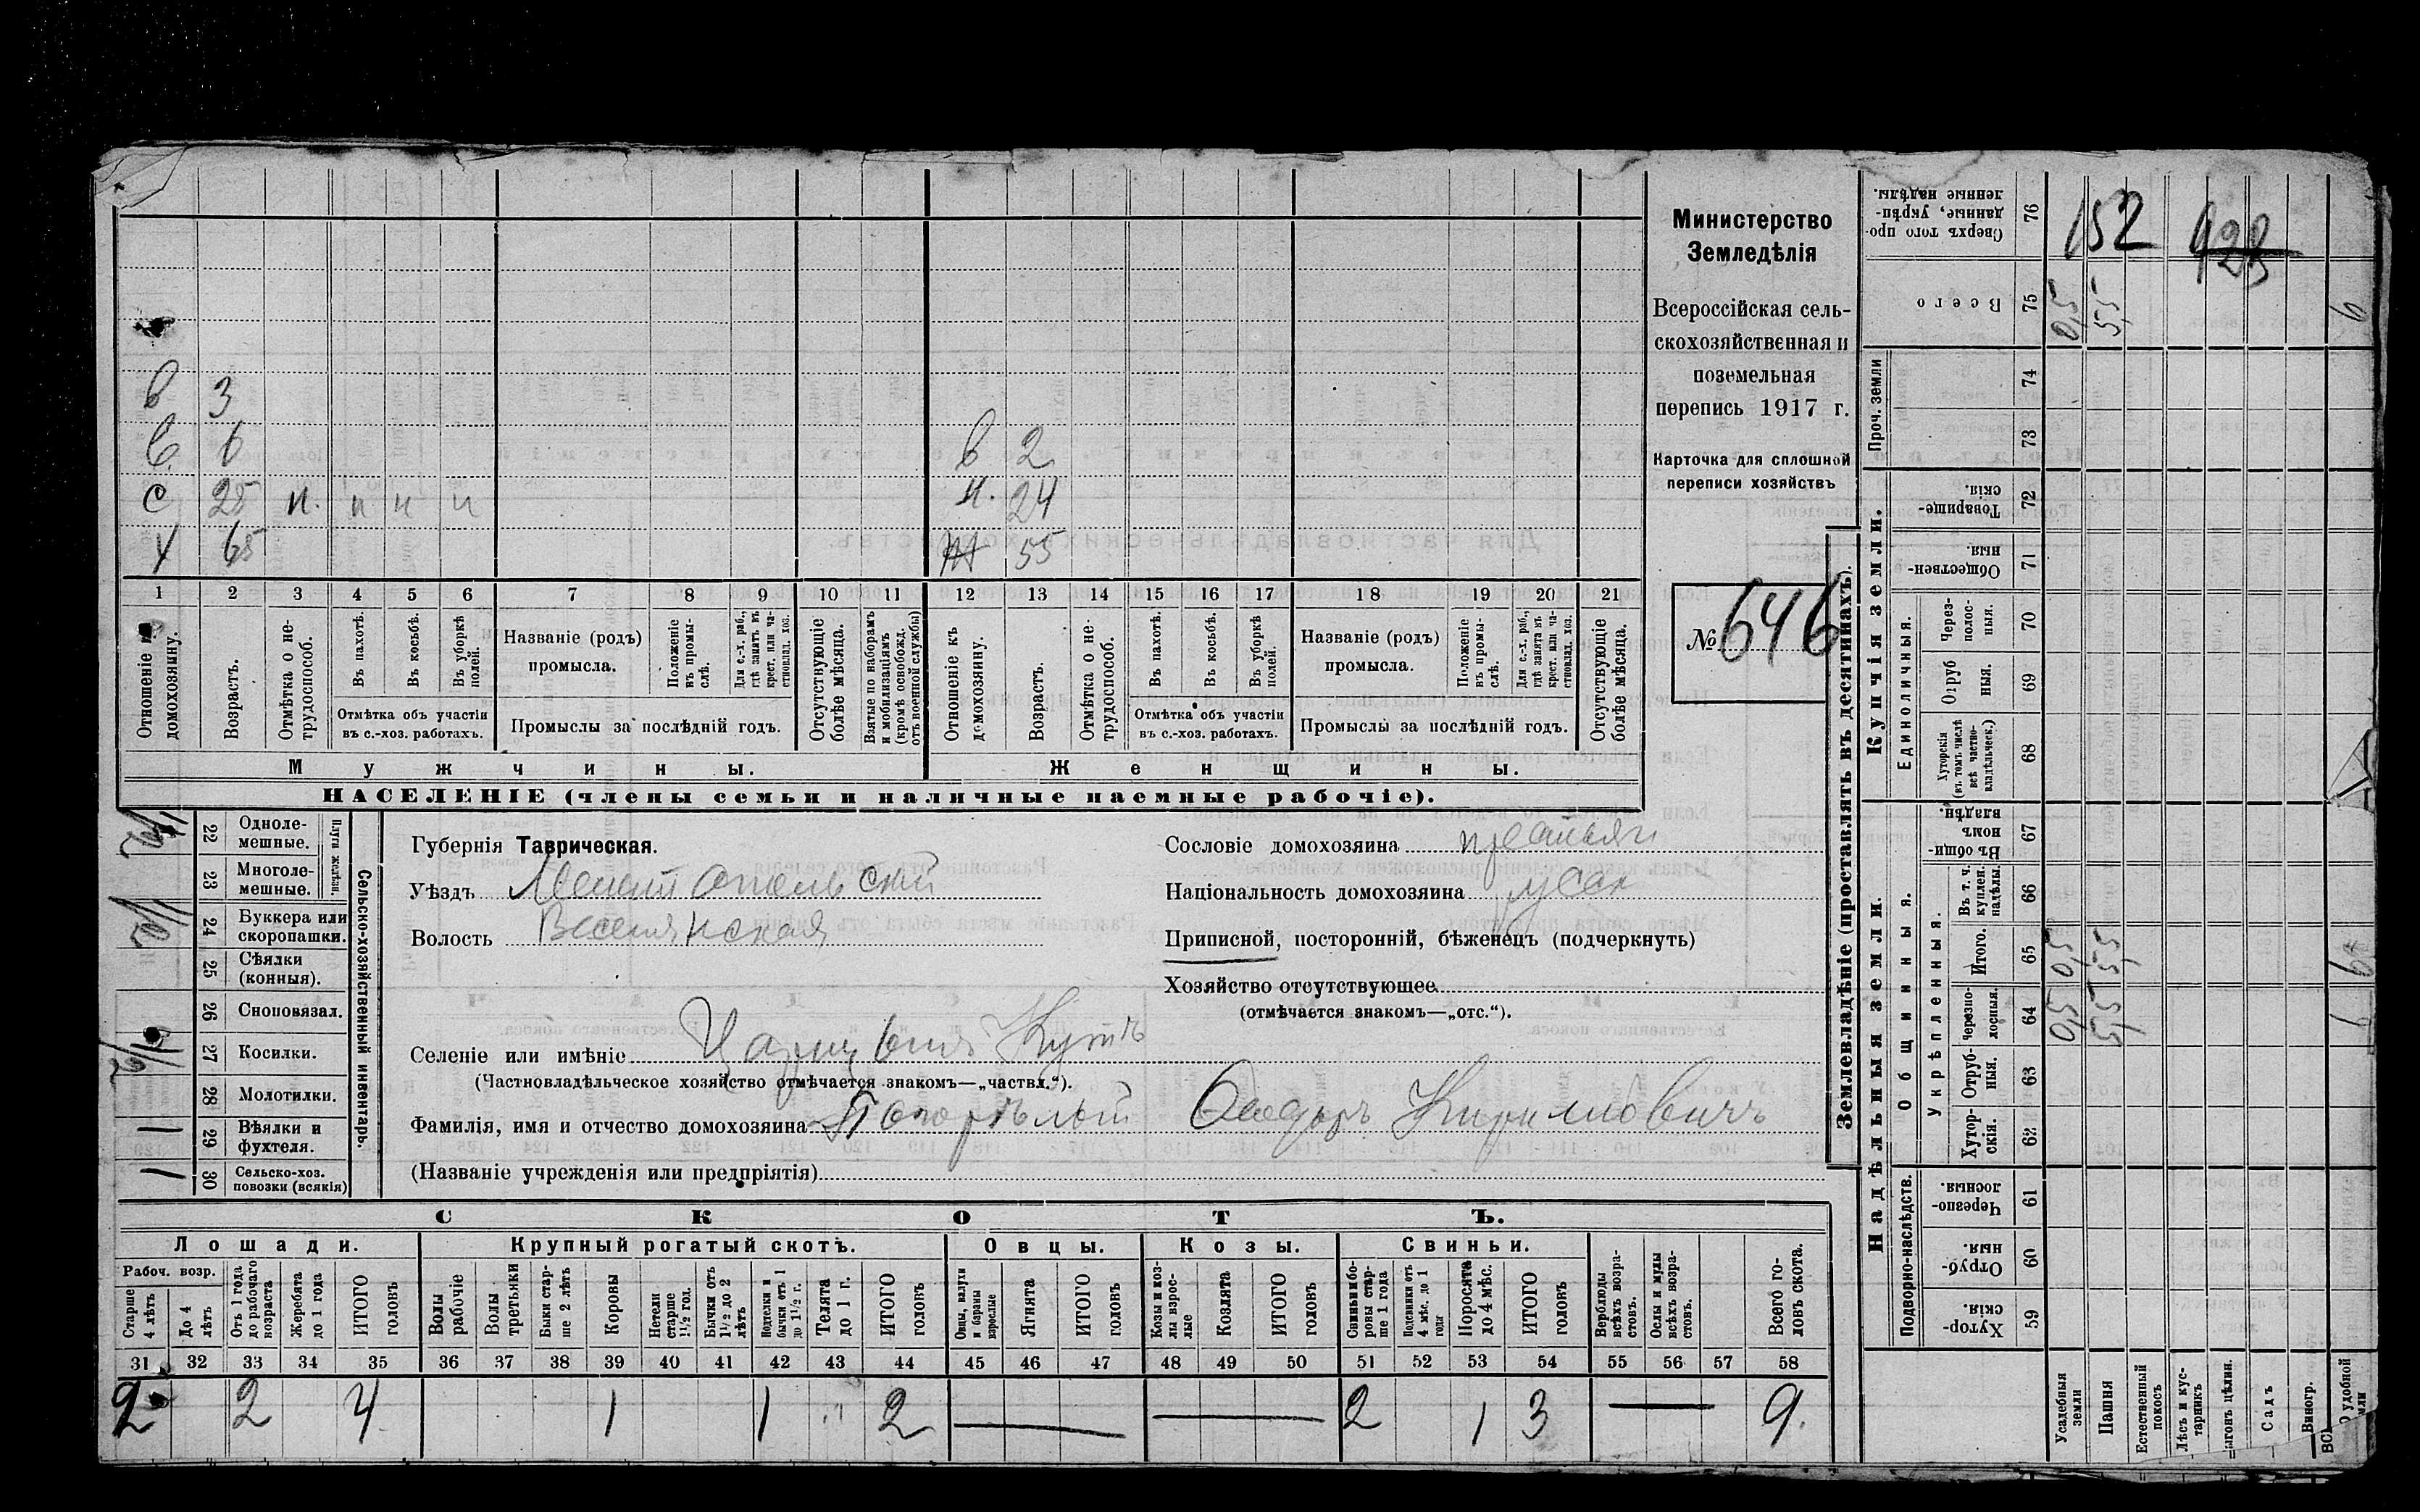 Министерство
Земледѣлія
Всероссійская сель-
скохозяйственная и
поземельная
перепись 1917 г.
Карточка для сплошной
переписи хозяйствъ
№ 646
в 3
в 6 в 2
с 25 п. п н и н. 24
Х 65 55
1 2 3 4 5 6 7 8 9 10 11 12 13 14 15 16 17 18 19 20 21
Отношеніе къ домохозяину.
Возрастъ.
Отмѣтка о не-
трудоспособ.
Въ пахотѣ.
Въ косьбѣ.
Въ уборкѣ
полей.
Отмѣтка объ участіи
въ с.-хоз. работахъ.
Названіе (родъ)
промысла.
Положеніе
въ промы-
слѣ.
Для с.-х. раб.,
гдѣ занятъ въ
крест. или ча-
стновлад. хоз.
Промыслы за послѣдній годъ.
Отсутствующіе
болѣе мѣсяца.
Взятые по наборамъ
и мобилизаціямъ
(кромѣ освобожд.
отъ военной службы)
Отношеніе къ
домохозяину.
Возрастъ.
Отмѣтка о не-
трудоспособ.
Въ пахотѣ.
Въ косьбѣ.
Въ уборкѣ
полей.
Отмѣтка объ участіи
въ с.-хоз. работахъ.
Названіе (родъ)
промысла.
Положеніе
въ промы-
слѣ.
Для с.-х. раб.,
гдѣ занята въ
крест. или ча-
стновлад. хоз.
Промыслы за послѣдній годъ.
Отсутствующіе
болѣе мѣсяца.
Мужчины. Женщины.
НАСЕЛЕНІЕ (члены семьи и наличные наемные рабочіе).
Сельско-хозяйственный инвентарь.
Плуги желѣзн.
22 Одноле-
мешные.
23 Многоле-
мешные.
1/2 24 Буккера или
скоропашки.
25 Сѣялки
(конныя).
26 Сноповязал.
1/2 27 Косилки.
28 Молотилки.
1 29 Вѣялки и
фухтеля.
1 30 Сельско-хоз.
повозки (всякія)
Губернія Таврическая.
Уѣздъ Мелитопольскій
Волость Веселянская
Селеніе или имѣніе Царицынъ Кутъ
(Частновладѣльческое хозяйство отмѣчается знакомъ—„частвл.“).
Фамилія, имя и отчество домохозяина Погорѣлый Ѳеодоръ Кириловичъ
(Названіе учрежденія или предпріятія)
Сословіе домохозяина крестьян
Національность домохозяина русск
Приписной, посторонній, бѣженецъ (подчеркнуть)
Хозяйство отсутствующее
(отмѣчается знакомъ—„отс.“).
СКОТЪ.
Лошади. Крупный рогатый скотъ. Овцы. Козы. Свиньи.
Рабоч. возр.
Старше
4 лѣтъ
До 4
лѣтъ
Отъ 1 года
до рабочаго
возраста
Жеребята
до 1 года
ИТОГО
головъ
Волы
рабочіе
Волы
третьяки
Быки стар-
ше 2 лѣтъ
Коровы
Нетели
старше
1½ год.
Бычки отъ
1½ до 2
лѣтъ
Подтелки и
бычки отъ 1
до 1½ г.
Телята
до 1 г.
ИТОГО
головъ
Овцы, валухи
и бараны
взрослые
Ягнята
ИТОГО
головъ
Козы и коз-
лы взрос-
лые
Козлята
ИТОГО
головъ
Свиньи и бо-
ровы стар-
ше 1 года
Подсвинки отъ
4 мѣс. до 1
года
Поросята
до 4 мѣс.
ИТОГО
головъ
Верблюды
всѣхъ возра-
стовъ.
Ослы и мулы
всѣхъ возра-
стовъ.
Всего го-
ловъ скота.
31 32 33 34 35 36 37 38 39 40 41 42 43 44 45 46 47 48 49 50 51 52 53 54 55 56 57 58
2 2 4 1 1 2 — — 2 1 3 — 9.
Землевладѣніе (проставлять въ десятинахъ).
Надѣльныя земли.
Купчія земли.
Проч. земли
Подворно-наслѣдств.
Общинныя.
Укрѣпленныя.
Единоличныя.
Сверхъ того про-
данные, укрѣп-
ленные надѣлы. 76 152 428
Всего 75 0,5 5,5 6
74
73
Товарище-
скія. 72
Обществен-
ныя. 71
Через-
полос-
ныя. 70
Отруб
ныя. 69
Хуторскія
(въ томъ числѣ
всѣ частно-
владѣльческ.) 68
Въ общин-
номъ
владѣн. 67
Въ т. ч.
куплен.
надѣлы. 66
Итого. 65 0,5 5,5
Черезпо-
лосныя. 64 0,5 5,5
Отруб-
ныя. 63
Хутор-
скія. 62
Черезпо-
лосныя 61
Отруб-
ныя. 60
Хутор-
скія. 59
Усадебныя
земли
Пашня
Естественный
покосъ
Лѣсъ и кус-
тарникъ
ыгонъ цѣлин.
Садъ
Виногр.
удобной